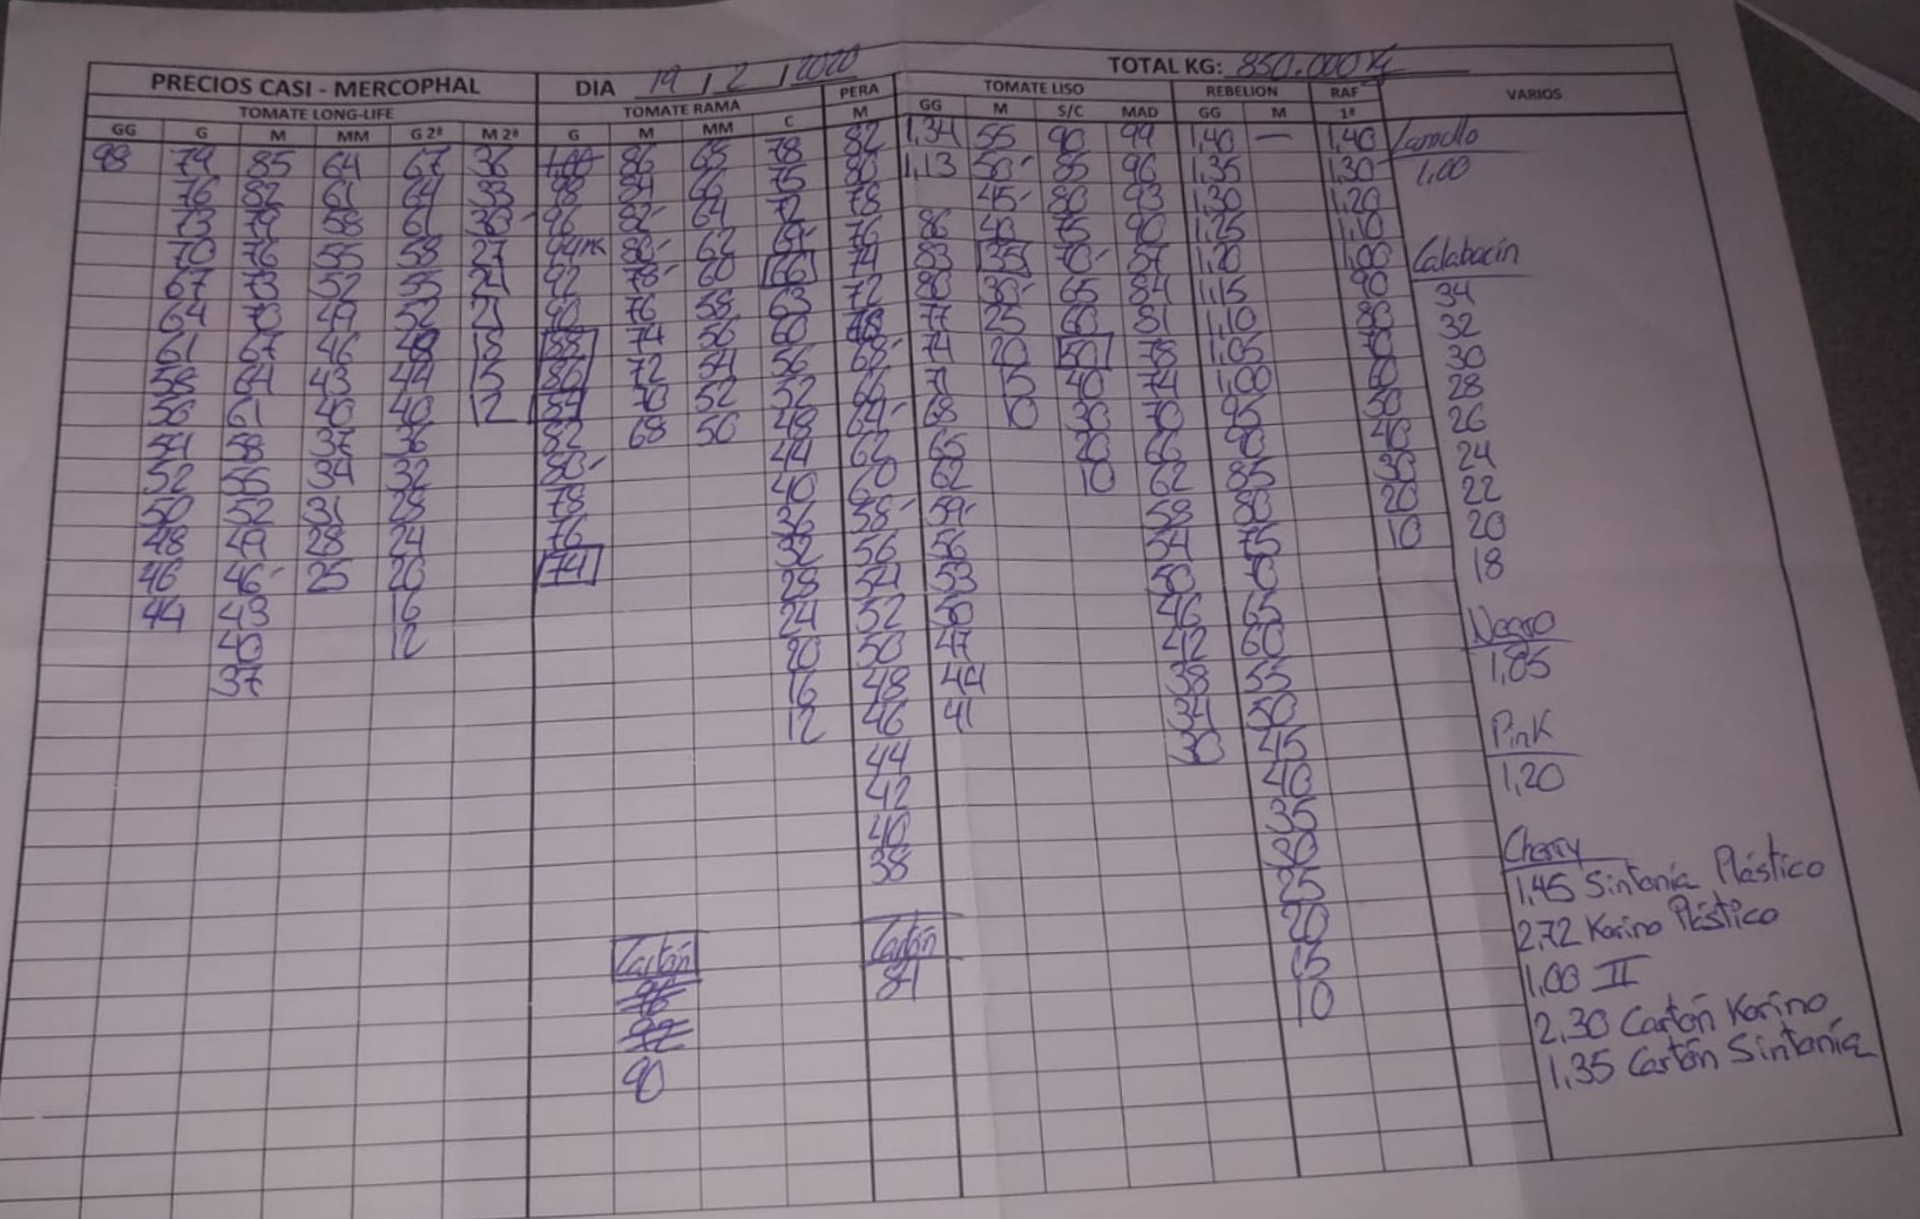 PRECIOS CASI - MERCOPHAL DIA 19 / 2 / 2020 TOTAL KG: 850.000 Kg
TOMATE LONG-LIFE TOMATE RAMA PERA TOMATE LISO REBELION RAF VARIOS
GG G M MM G 2ª M 2ª G M MM C M GG M S/C MAD GG M 1ª
98 79 85 64 67 36 1,00 86 68 78 82 1,34 55 90 99 1,40 — 1,40 Lamollo
76 82 61 64 33 98 84 66 75 80 1,13 50- 85 96 1,35 1,30 1,00
73 79 58 61 30- 96 82- 64 72 78 45- 80 93 1,30 1,20
70 76 55 58 27 94 80- 62 69- 76 86 40 75 90 1,25 1,10
67 73 52 55 24 92 78- 60 66 74 83 35 70- 87 1,20 1,00 Calabacín
64 70 49 52 21 90 76 58 63 72 80 30- 65 84 1,15 90 34
61 67 46 48 18 88 74 56 60 77 25 60 81 1,10 80 32
58 64 43 44 15 86 72 54 56 68- 74 20 50 78 1,05 70 30
56 61 40 40 12 84 70 52 52 66 71 15 40 74 1,00 60 28
54 58 37 36 82 68 50 48 64- 68 10 30 70 95 50 26
52 55 34 32 80- 44 62 65 20 66 90 40 24
50 52 31 28 78 40 60 62 10 62 85 30 22
48 49 28 24 76 36 58- 59- 58 80 20 20
46 46- 25 20 74 32 56 56 54 75 10 18
44 43 16 28 54 53 50 70
40 12 24 52 50 46 65 Negro
37 20 50 47 42 60 1,85
16 48 44 38 55
12 46 41 34 50 Pink
44 30 45 1,20
42 40
40 35
38 30 Cherry
25 1,45 Sintonía Plástico
Cartón Cartón 20 2,72 Korino Plástico
96 84 15 1,00 II
92 10 2,30 Cartón Korino
90 1,35 Cartón Sintonía